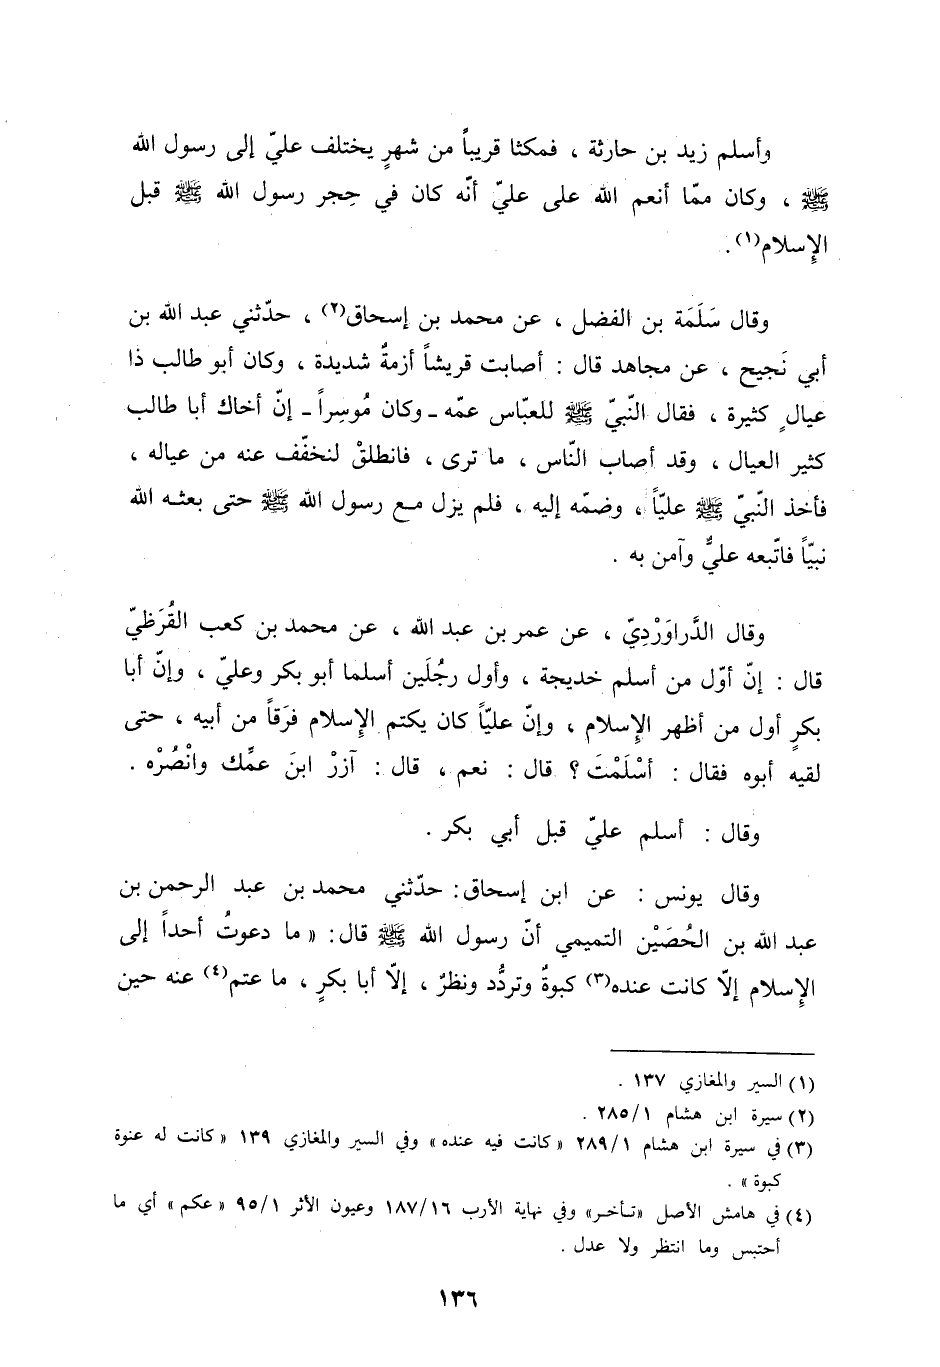 وأسلم زيد بن حارثة ، فمكثا قريباً من شهرٍ يختلف عليّ إلى رسول الله
ﷺ ، وكان ممّا أنعم الله على عليّ أنّه كان في حِجر رسول الله ﷺ قبل
الإِسلام(١) .
وقال سَلَمَة بن الفضل ، عن محمد بن إسحاق(٢) ، حدّثني عبد الله بن
أبي نَجيح ، عن مجاهد قال : أصابت قريشاً أزمةٌ شديدة ، وكان أبو طالب ذا
عيالٍ كثيرة ، فقال النّبيّ ﷺ للعبّاس عمّه ـ وكان مُوسِراً ـ إنّ أخاك أبا طالب
كثير العيال ، وقد أصاب النّاس ، ما ترى ، فانطلقْ لنخفّف عنه من عياله ،
فأخذ النّبيّ ﷺ عليّاً ، وضمّه إليه ، فلم يزل مع رسول الله ﷺ حتى بعثه الله
نبيّاً فاتّبعه عليٌّ وآمن به .
وقال الدَّراوَرْدِيّ ، عن عمر بن عبد الله ، عن محمد بن كعب القُرَظيّ
قال : إنّ أوّل من أسلم خديجة ، وأول رجُلَين أسلما أبو بكر وعليّ ، وإنّ أبا
بكرٍ أول من أظهر الإِسلام ، وإنّ عليّاً كان يكتم الإِسلام فرَقاً من أبيه ، حتى
لقيه أبوه فقال : أسْلَمْتَ ؟ قال : نعم ، قال : آزرْ ابنَ عمِّك وانْصُرْه .
وقال : أسلم عليّ قبل أبي بكر .
وقال يونس : عن ابن إسحاق : حدّثني محمد بن عبد الرحمن بن
عبد الله بن الحُصَيْن التميمي أنّ رسول الله ﷺ قال : « ما دعوتُ أحداً إلى
الإِسلام إلّا كانت عنده(٣) كبوةٌ وتردُّد ونظرٌ ، إلّا أبا بكرٍ ، ما عتم(٤) عنه حين
(١) السير والمغازي ١٣٧ .
(٢) سيرة ابن هشام ٢٨٥/١ .
(٣) في سيرة ابن هشام ٢٨٩/١ « كانت فيه عنده » وفي السير والمغازي ١٣٩ « كانت له عنوة
كبوة » .
(٤) في هامش الأصل «تأخر» وفي نهاية الأرب ١٨٧/١٦ وعيون الأثر ٩٥/١ « عكم » أي ما
أحتبس وما انتظر ولا عدل .
١٣٦